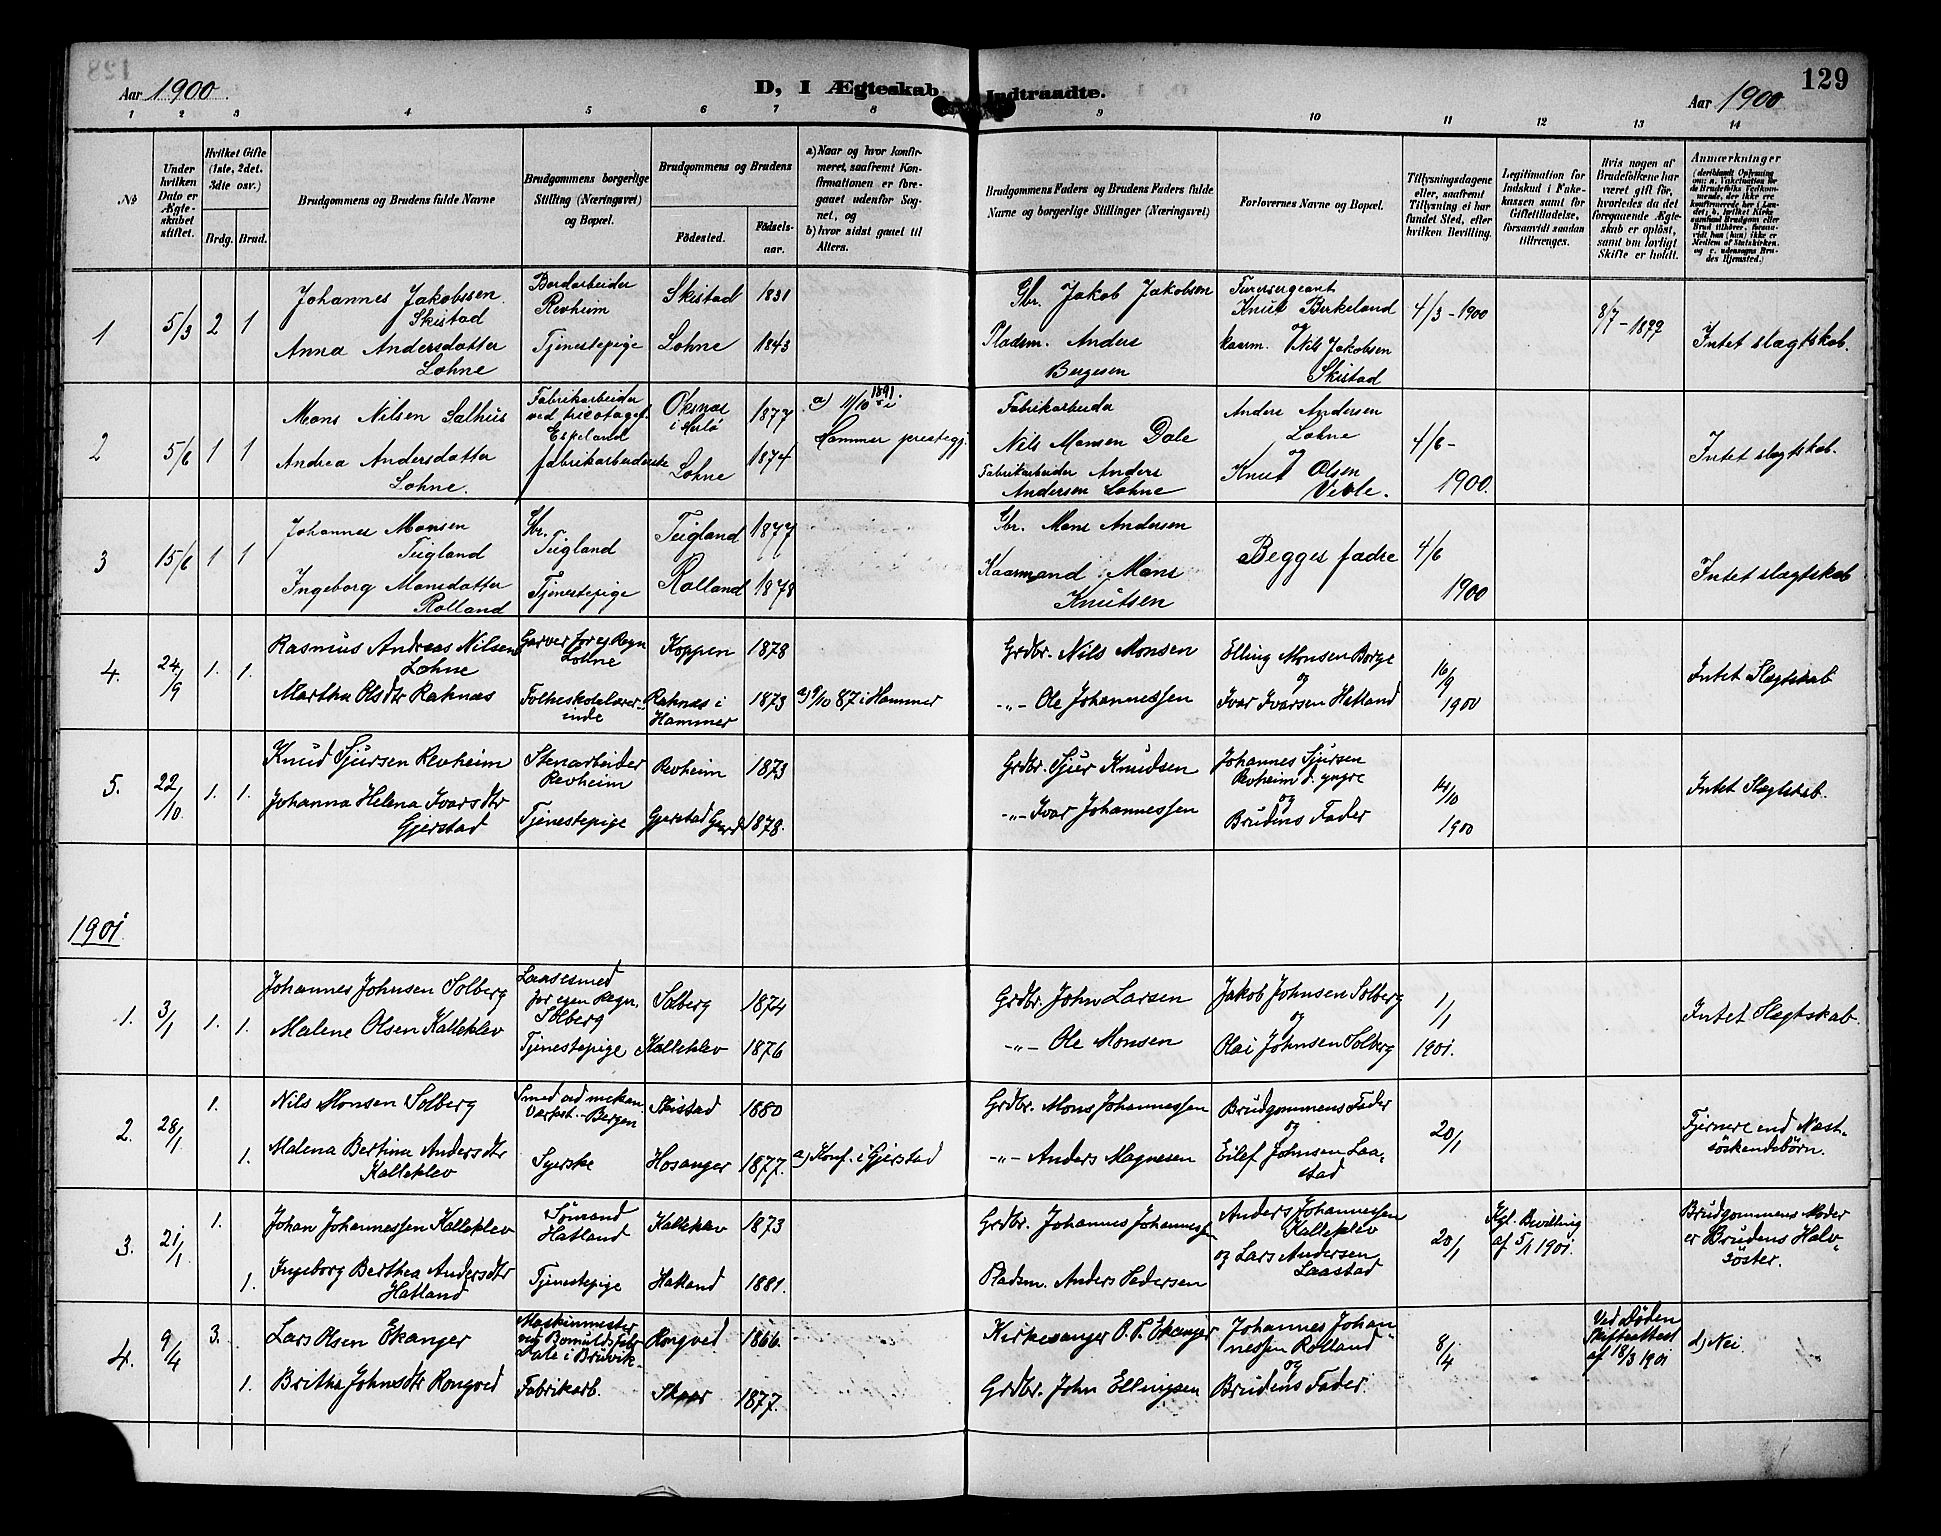 128
129
Aar 1900.
D, I Ægteskab Indtraadte.
Aar 1900
1 2 3 4 5 6 7 8 9 10 11 12 13 14
No
Under hvilken Dato er Ægteskabet stiftet.
Hvilket Gifte (1ste, 2det. 3die osv.)
Brdg. Brud.
Brudgommens og Brudens fulde Navne
Brudgommens borgerlige Stilling (Næringsvei) og Bopæl.
Brudgommens og Brudens
Födested.
Födselsaar.
a) Naar og hvor konfirmeret, saafremt Konfirmationen er foregaaet udenfor Sognet, og
b) hvor sidst gaaet til Alters.
Brudgommens Faders og Brudens Faders fulde Navne og borgerlige Stillinger (Næringsvei)
Forlovernes Navne og Bopæl.
Tillysningsdagene eller, saafremt Tillysning ei har fundet Sted, efter hvilken Bevilling.
Legitimation for Indskud i Enkekassen samt for Giftetilladelse, forsaavidt saadan tiltrænges.
Hvis nogen af Brudefolkene har været gift för, hvorledes da det foregaaende Ægteskab er oplöst, samt om lovligt Skifte er holdt.
Anmærkninger
1 5/3 2 1
Johannes Jakobssen
Skistad
Bordarbeider
Revheim
Skistad 1831
Gbr. Jakob Jakobsen
Furersergeant
Knut Birkeland
og
4/3 - 1900
8/7 - 1877
Intet slægtskab.
Anna Andersdatter
Lohne
Tjenestepige
Lohne 1843
Pladsm. Anders
Bergesen
kaarm. Nils Jakobsen
Skistad
2 5/6 1 1
Mons Nilsen Salhus
Fabrikarbeider
ved tricotagef.
Espeland
Oksnæs
i Herlø
1877
a) 11/10 1891 i
Hammer prestegj.
Fabrikarbeider
Nils Monsen Dale
Anders Andersen
Lohne
og
4/6 -
1900.
Intet slegtskab.
Andrea Andersdatter
Lohne.
fabrikarbeiderske
Lohne 1874
Fabrikarbeider Anders
Andersen Lohne
Knut Olsen
Vevle.
3 15/6 1 1
Johannes Monsen
Teigland
Gbr.
Teigland
Teigland 1877
Gbr. Mons Andersen
Begges fadre
4/6
1900
Intet slægtskab
Ingeborg Monsdatter
Rolland
Tjenestepige
Rolland 1878
Kaarmand Mons
Knutsen
4. 24/9 1. 1.
Rasmus Andreas Nilsen
Lohne
Garver for eg. Regn.
Lohne
Koppen 1878
Grdbr. Nils Monsen
Elling Monsen Borge
og
16/9
1900
Intet Slægtskab
Martha Olsdtr Raknæs
Folkeskolelærerinde
Raknæs i
Hammer
1873
a) 9/10 87 i Hammer
-"- Ole Johannessen
Ivar Ivarsen Hatland
5. 22/10. 1. 1.
Knud Sjursen Revheim
Stenarbeider
Revheim
Revheim 1873
Grdbr. Sjur Knudsen
Johannes Sjursen
Revheim d. yngre
og
14/10
1900
Intet Slægtskab.
Johanna Helena Ivarsdtr
Gjerstad
Tjenestepige
Gjerstad 1878.
-"- Ivar Johannessen
Brudens Fader
1901.
1. 3/1 1. 1.
Johannes Johnsen Solberg
Laasesmed
for egen Regn.
Solberg
Solberg 1874
Grdbr. John Larsen
Jakob Johnsen Solberg
og
1/1
1901.
Intet Slegtskab.
Malene Olsen Kalleklev
Tjenestepige
Kalleklev 1876
-"- Ole Monsen
Olai Johnsen Solberg
2. 28/1 1.
Nils Monsen Solberg
Smed ved mekan.
Værkst. - Bergen
Skistad 1880
Grdbr. Mons Johannessen
Brudgommens Fader
og
20/1
Fjernere end Næst-
söskendebörn.
1.
Malena Bertine Andersdtr
Kalleklev
Syerske
Hosanger 1877.
a) Konf. i Gjerstad
-"- Anders Magnesen
Eilef Johnsen Laa-
stad
3. 21/1 1.
Johan Johannessen Kalleklev
Sömand
Hatland
Kalleklev 1873
Grdbr. Johannes Johannessen
Anders Johannessen
Kalleklev
20/1
Kgl. Bevilling
af 5/1 1901.
Brudgommens Moder
er Brudens Halv-
söster.
1.
Ingeborg Berthea Andersdtr
Hatland
Tjenestepige
Hatland 1881.
Pladsm. Anders Pedersen
og Lars Andersen
Laastad
4. 9/4 3.
Lars Olsen Ekanger
Maskinmester
ved Bomuldsfabr.
Dale i Bruvik.
Rongved 1866.
Kirkesanger O. P. Ekanger
Johannes Johan-
nessen Rolland
og
8/4
Ved Døden
Skifteattest
af 18/3 1901
d) Nei
1.
Britha Johnsdtr Rongved
Fabrikarb.
Skaar 1877.
Grdbr. John Ellingsen
Brudens Fader.